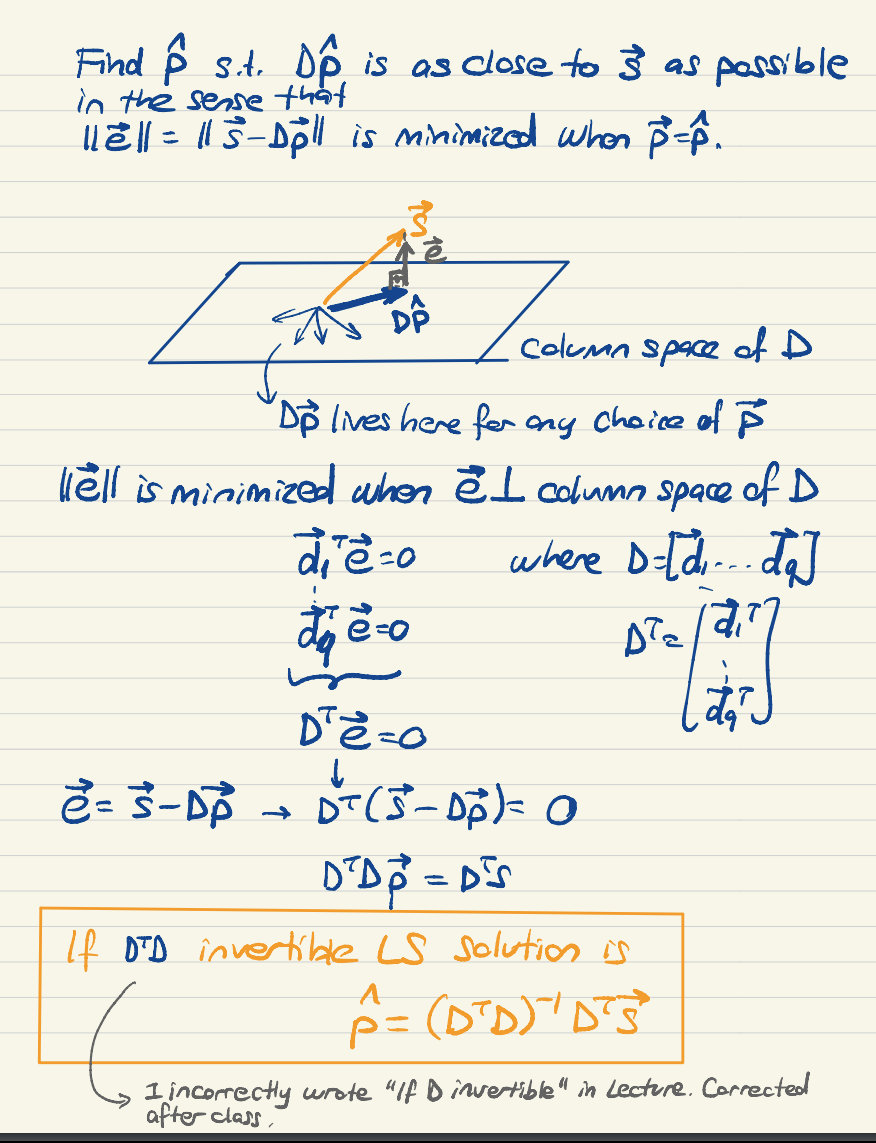 Find p̂ s.t. Dp̂ is as close to s⃗ as possible
in the sense that
||e⃗|| = ||s⃗-Dp⃗|| is minimized when p⃗=p̂.
s⃗
e⃗
Dp̂
Column space of D
Dp⃗ lives here for any choice of p⃗
||e⃗|| is minimized when e⃗ ⊥ column space of D
d⃗₁ᵀe⃗=0 where D=[d⃗₁....d⃗q]
⋮
d⃗qᵀe⃗=0 Dᵀ=[d⃗₁ᵀ
⋮
d⃗qᵀ]
Dᵀe⃗=0
↓
e⃗=s⃗-Dp⃗ → Dᵀ(s⃗-Dp⃗)=0
DᵀDp⃗=Dᵀs
If DᵀD invertible LS solution is
p̂=(DᵀD)⁻¹Dᵀs⃗
I incorrectly wrote "If D invertible" in Lecture. Corrected
after class.